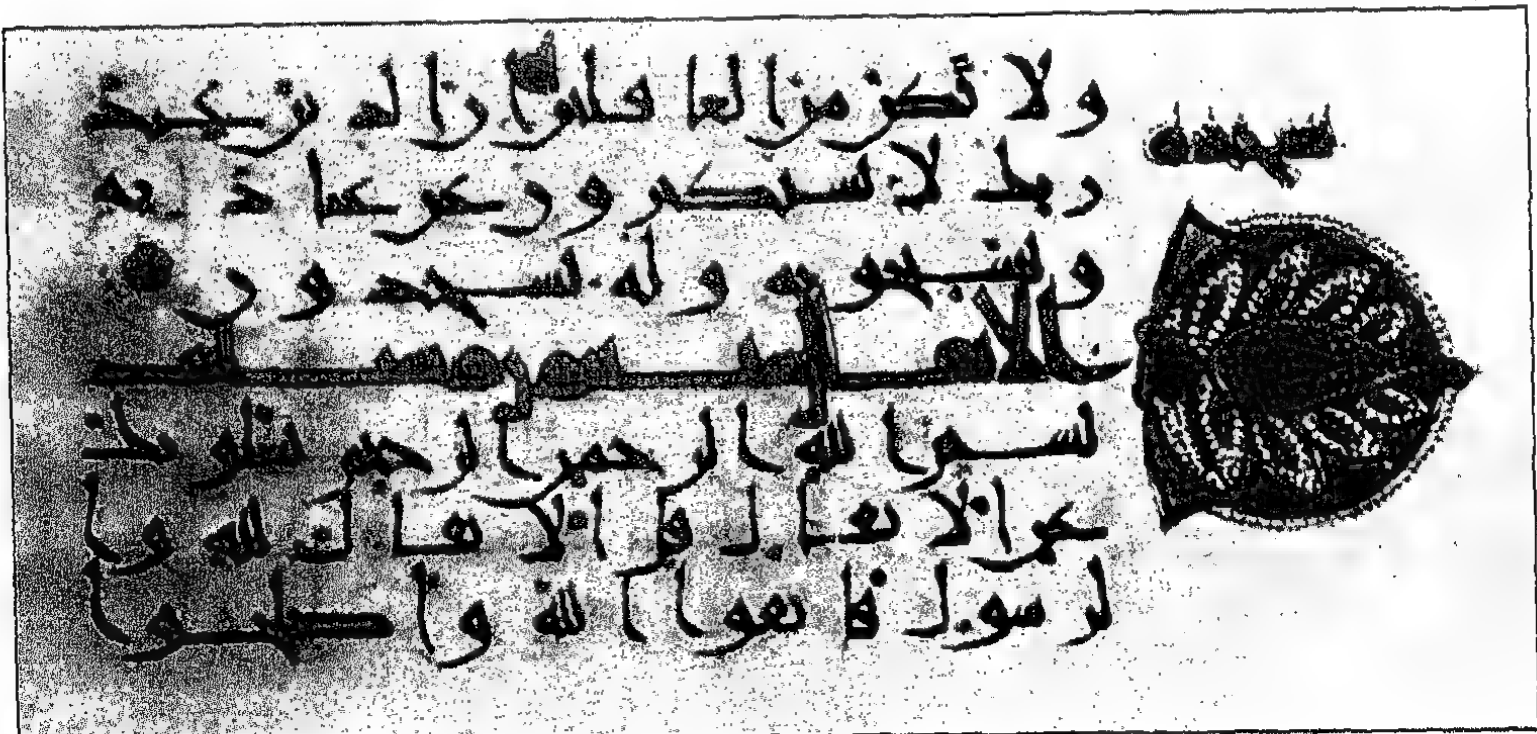 ولا تكن من الغا فلين ان الذين عند
سجده
ربك لا يستكبرون عن عبا د ته
ويسبحونه وله يسجدون
الانفال
بسم الله الرحمن الرحيم يسلونك
عن الانفال قل الانفال لله وا
لرسول فاتقوا الله واصلحوا